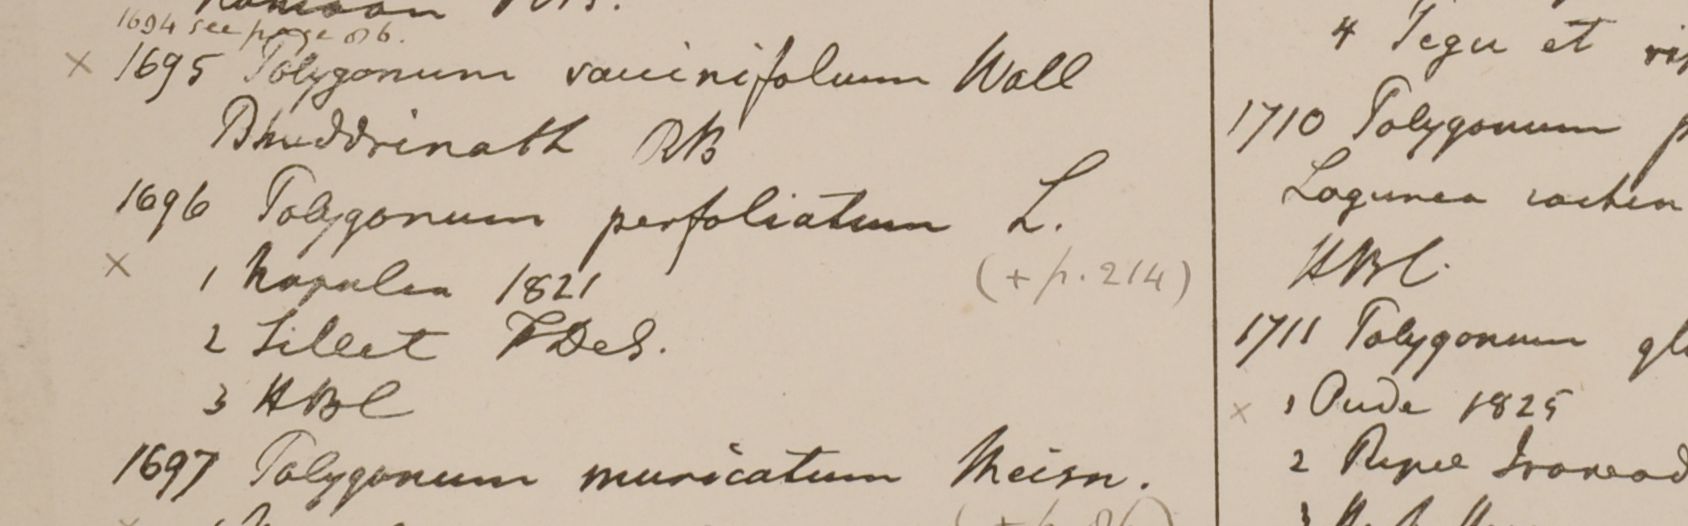 1694 see page 86.
× 1695 Polygonum vacciniifolium Wall
Bhuddrinath RB
1696 Polygonum perfoliatum L.
× 1 Napalia 1821 (+ p. 214)
2 Sillet FDeS.
3 HBC
1697 Polygonum muricatum Meisn.
4 Tegu et
1710 Polygonum
Lagunea cochin
HBC.
1711 Polygonum gl
× 1 Oude 1825
2